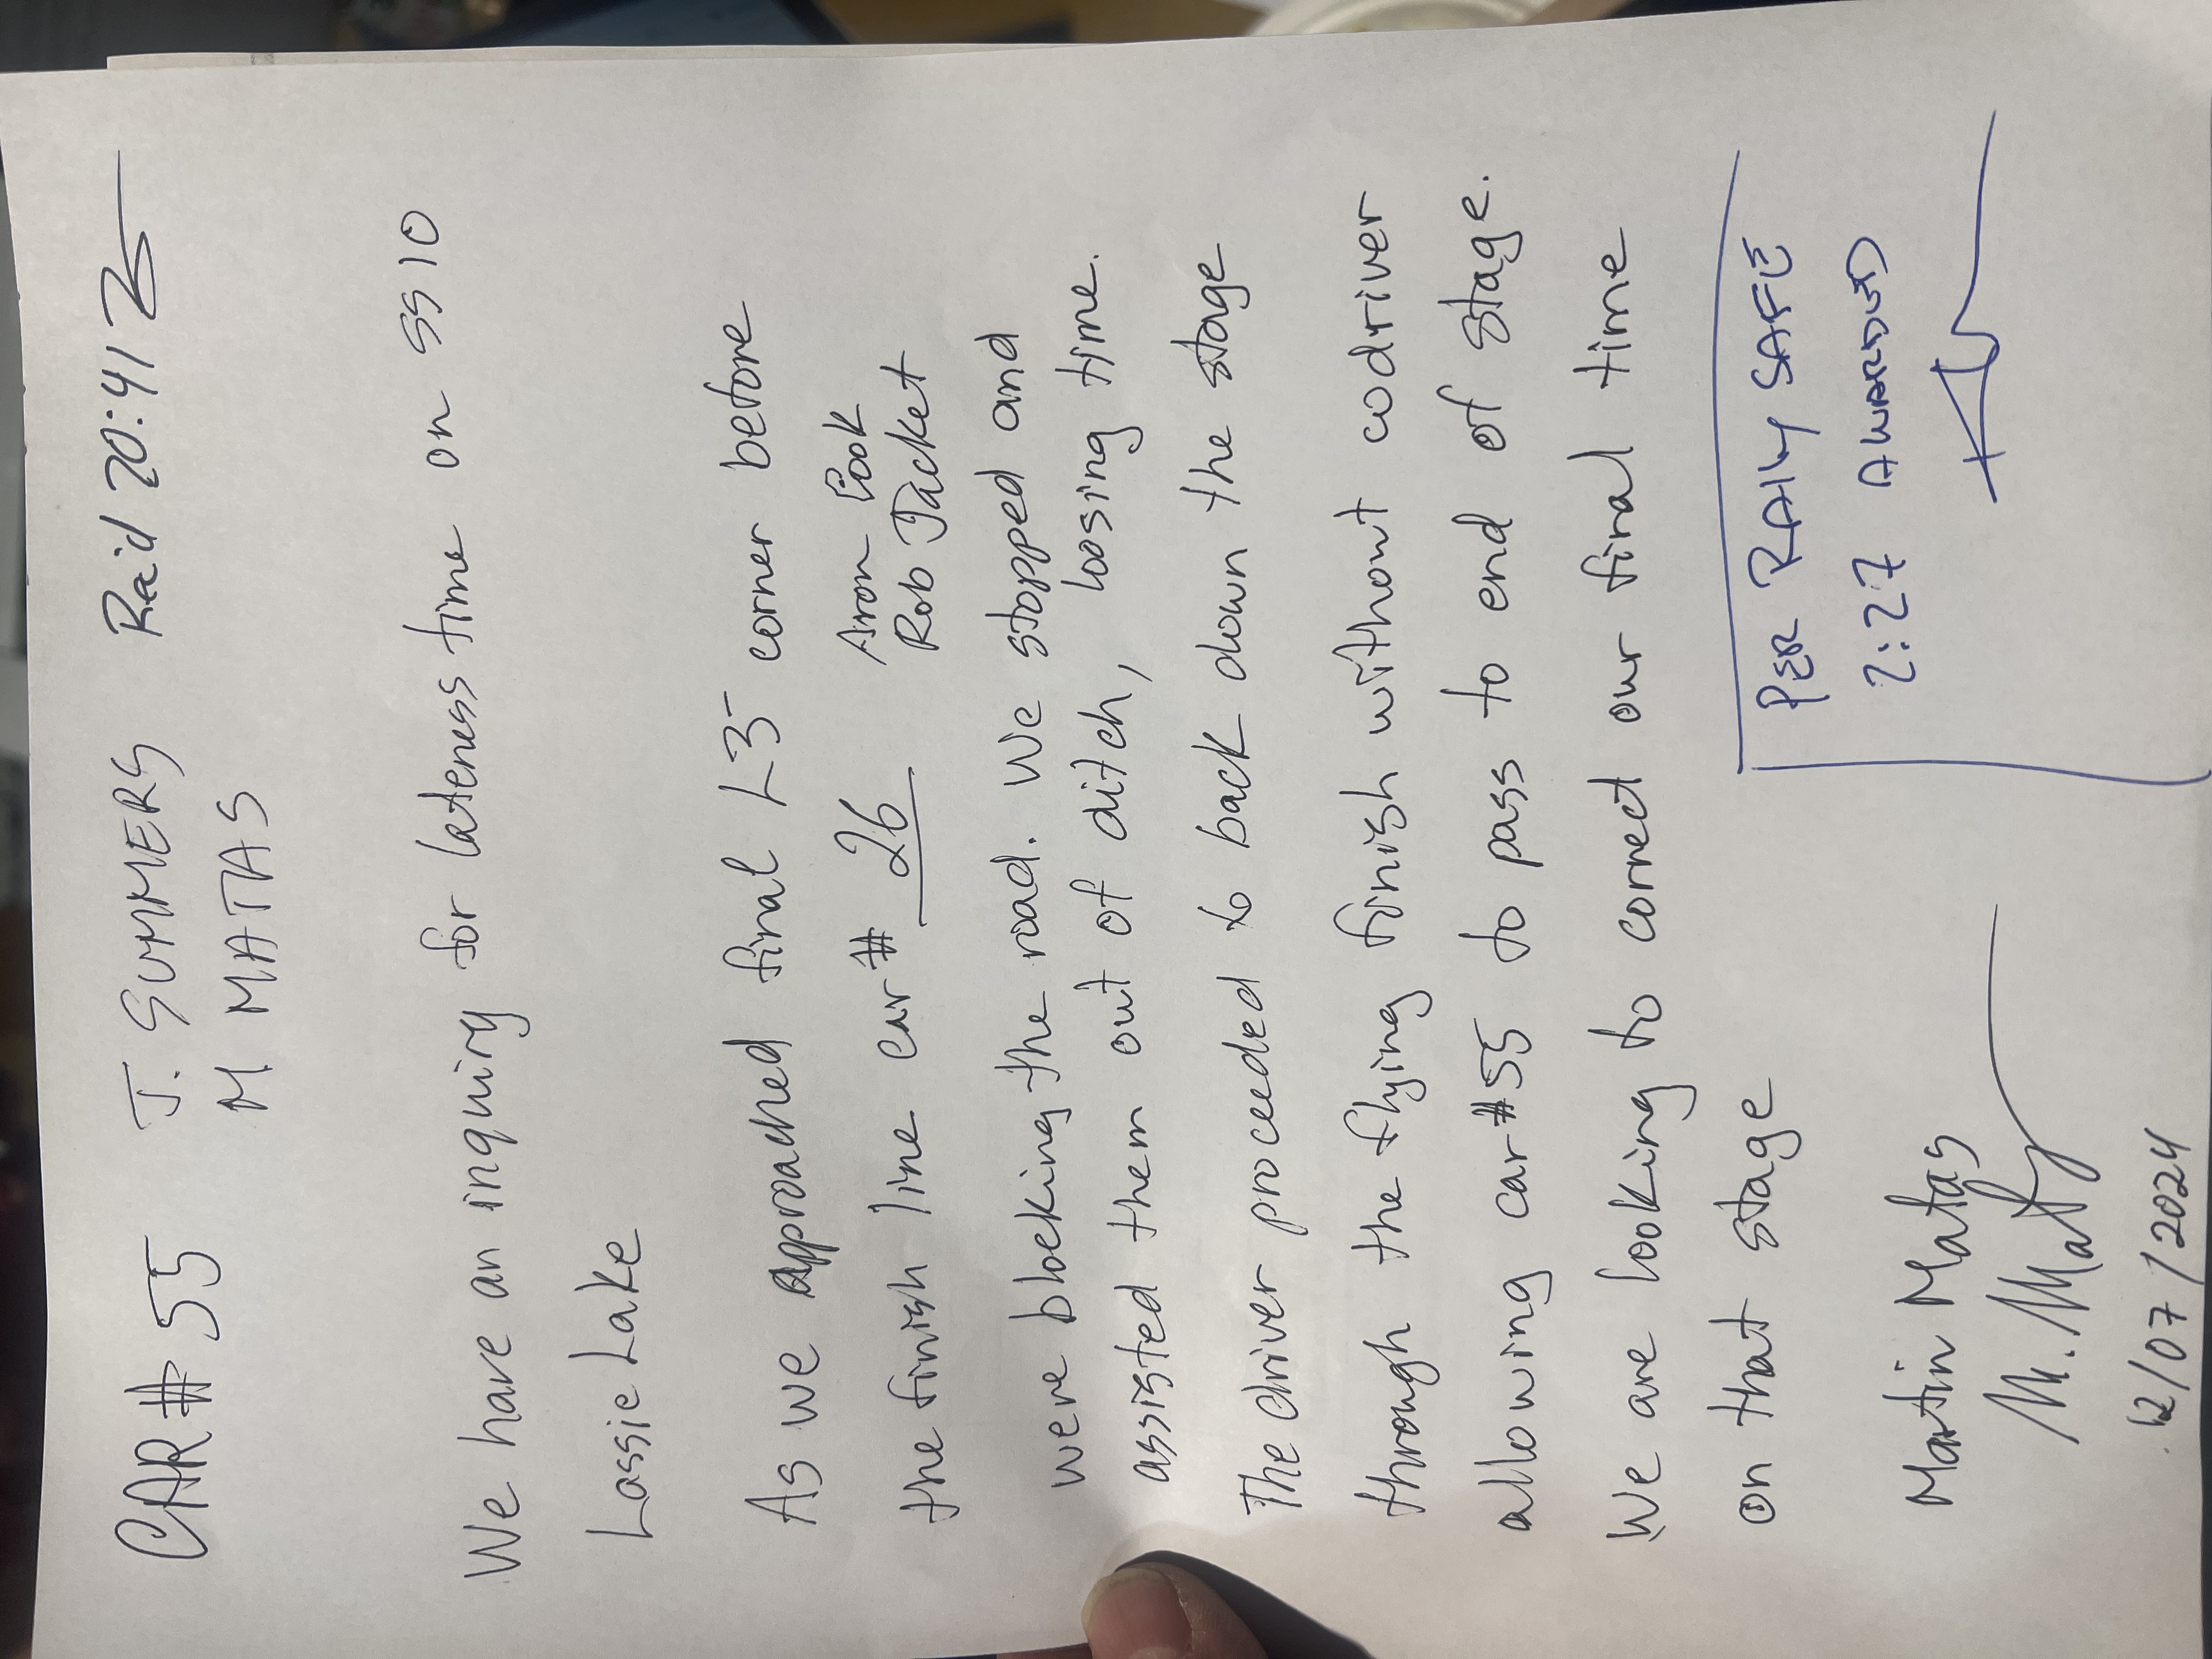 CAR # 55 J. SUMMERS Rec'd 20:41
M MATAS
We have an inquiry for lateness time on SS10
Lassie Lake
As we approached final L3- corner before
the finish line car # 26 Aron Cook
Rob Jacket
were blocking the road. We stopped and
assisted them out of ditch, loosing time.
The driver proceeded to back down the stage
through the flying finish without codriver
allowing car #55 to pass to end of stage.
We are looking to correct our final time
on that stage
PER RALLY SAFE
2:27 AWARDED
Martin Matas
M. Matas
12/07/2024